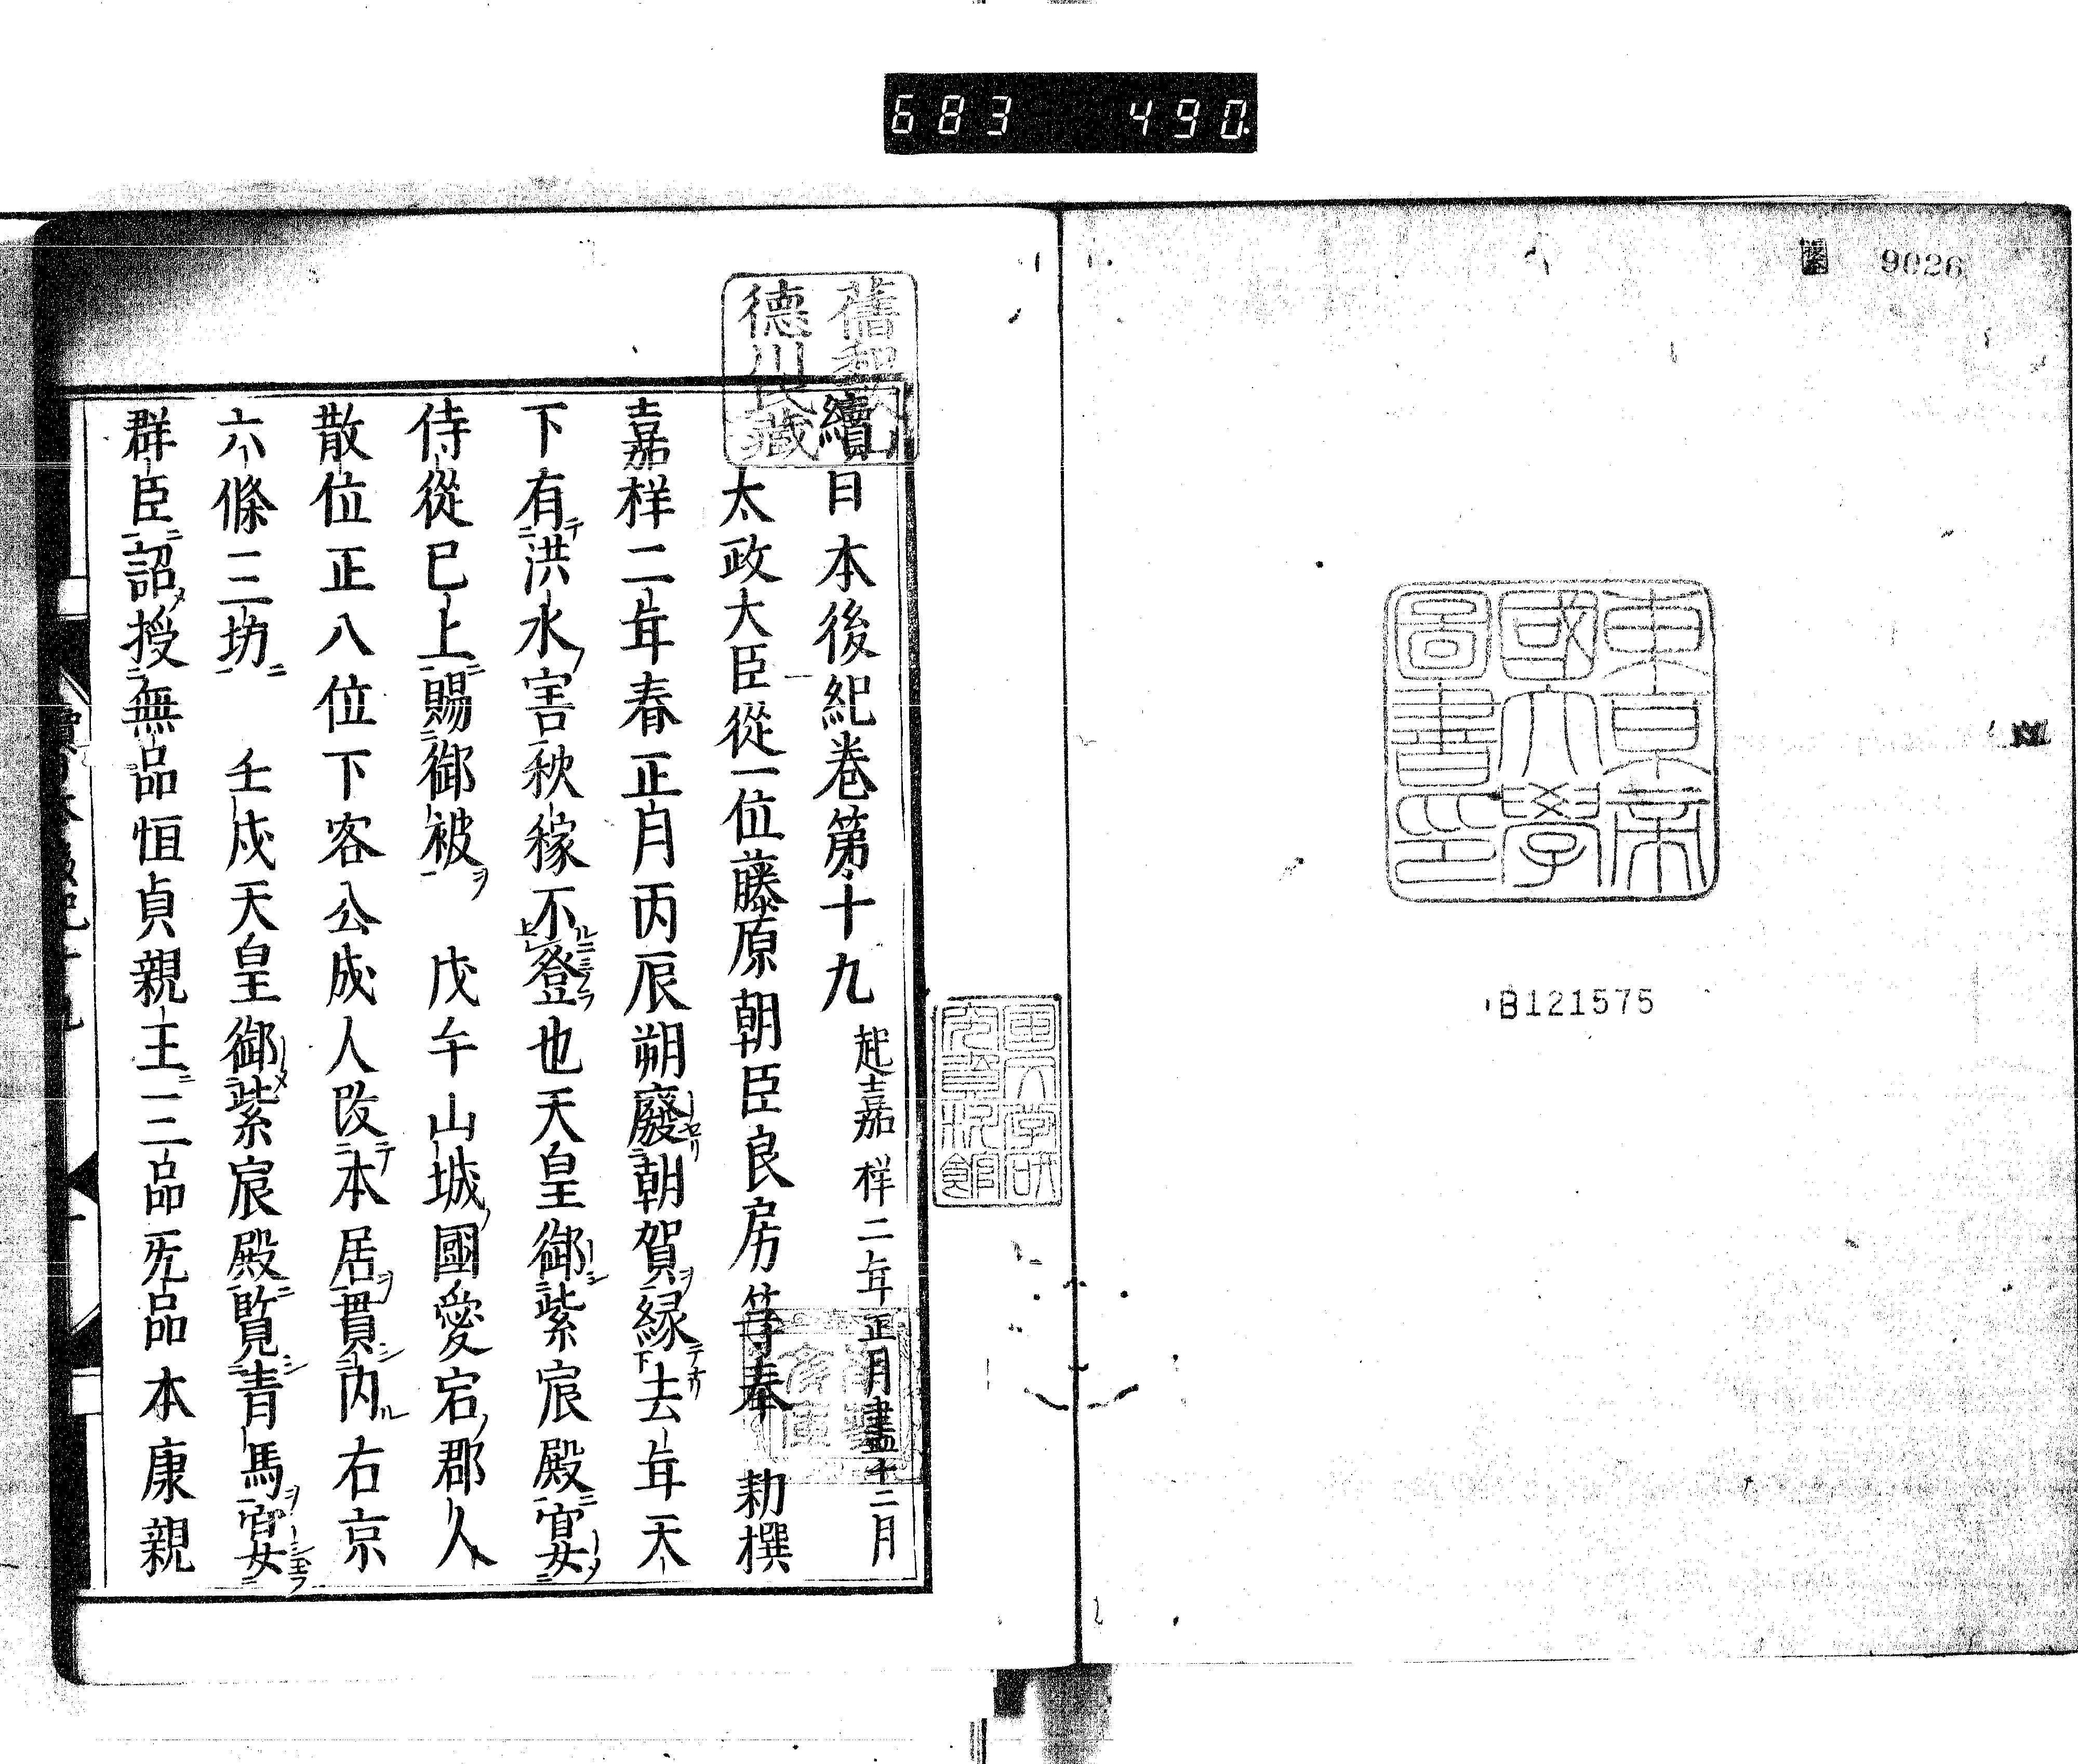 683 490
9026
東京帝
國大學
圖書印
B121575
國文学研
究資料館
舊和歌山
德川氏藏
續日本後紀卷第十九 起嘉祥二年正月盡十二月
太政大臣從一位藤原朝臣良房等奉 勅撰
嘉祥二年春正月丙辰朔廢朝賀緣去年天
下有洪水害秋稼不登也天皇御紫宸殿宴
侍從已上賜御被 戊午山城國愛宕郡人
散位正八位下客公成人改本居貫內右京
六條三坊 壬戌天皇御紫宸殿覧青馬宴
群臣詔授無品恒貞親王三品旡品本康親